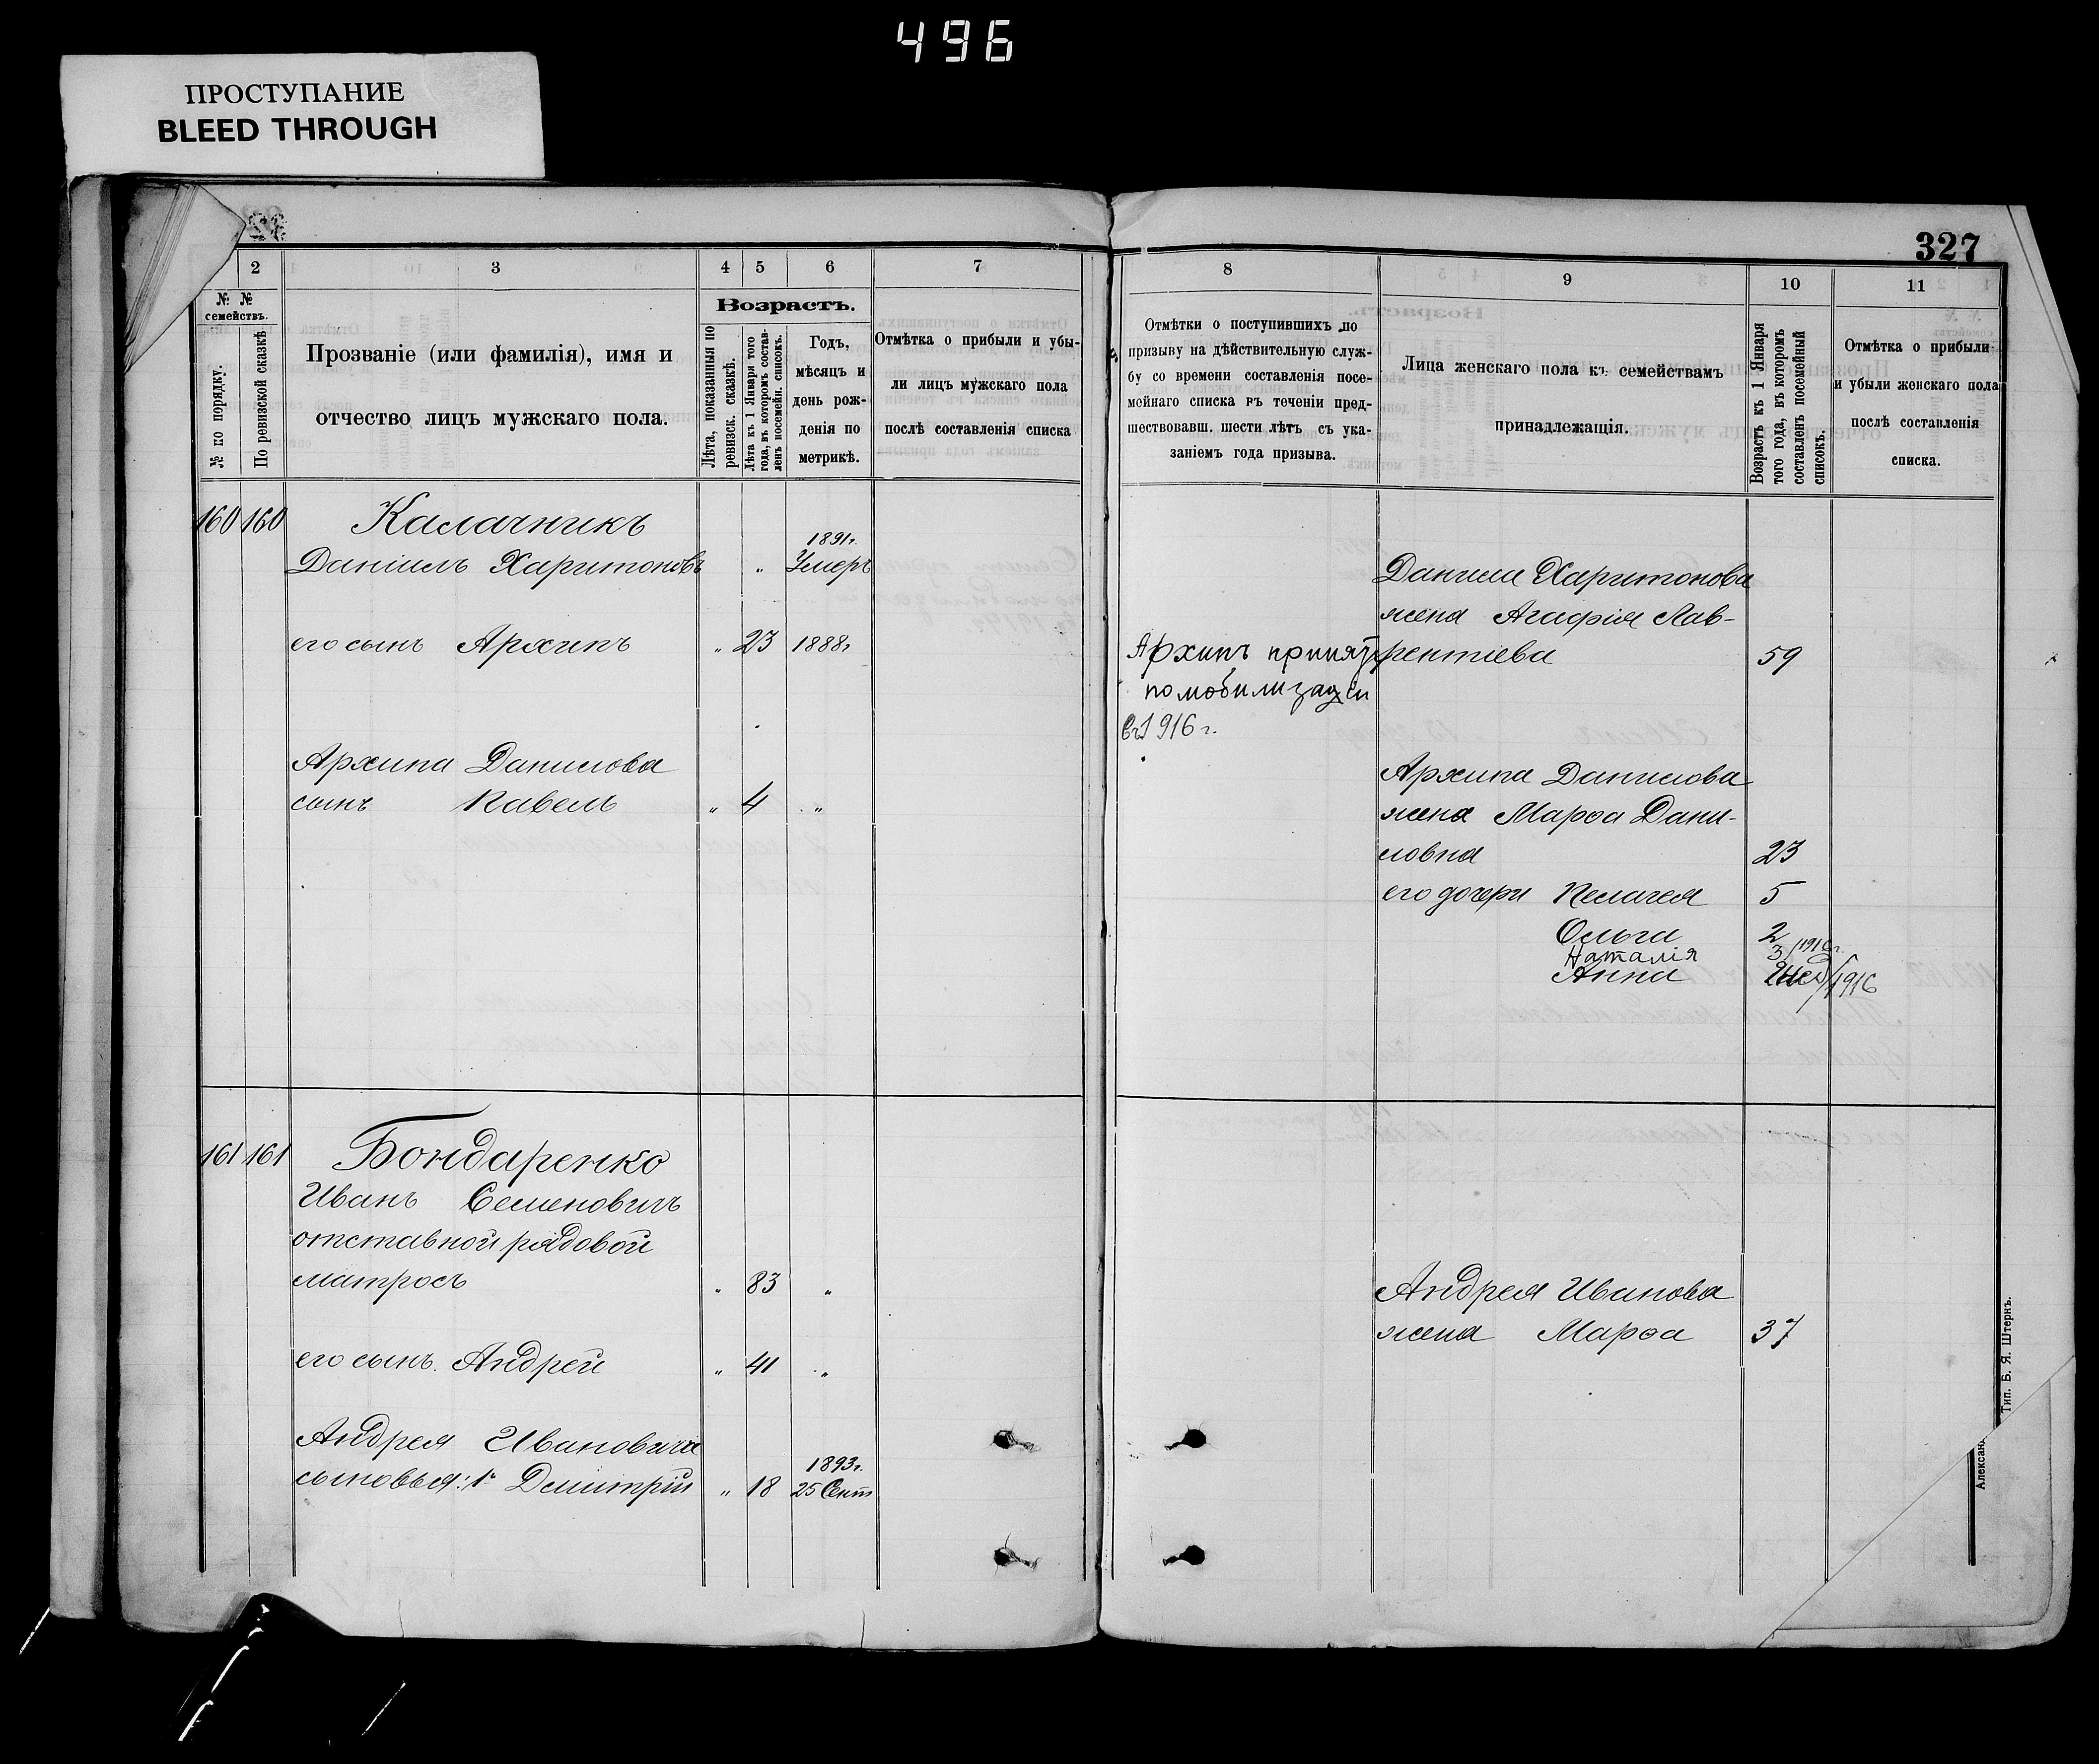 496
ПРОСТУПАНИЕ
BLEED THROUGH
327
2
3
4
5
6
7
№ №
семействъ.
№ по порядку.
По ревизской сказкѣ
Прозваніе (или фамилія), имя и
отчество лицъ мужскаго пола.
Возрастъ.
Лѣта, показанныя по
ревизск. сказкѣ.
Лѣта къ 1 Января того
года, въ которомъ состав-
ленъ посемейн. списокъ.
Годъ,
мѣсяцъ и
день рож-
денія по
метрикѣ.
Отмѣтка о прибыли и убы-
ли лицъ мужскаго пола
послѣ составленія списка
160 160 Калачникъ
1891г.
Даніилъ Харитоновъ " Умеръ
его сынъ Архипъ " 23 1888г
Архипа Данилова
сынъ Павелъ " 4 "
161 161 Бондаренко
Иванъ Семеновичъ
отставной рядовой
матросъ " 83 "
его сынъ Андрей " 41 "
Андрея Ивановича
1893г.
сыновья: 1й Дмитрій " 18 25 Сент
8
9
10
11
Отмѣтки о поступившихъ по
призыву на дѣйствительную служ-
бу со времени составленія посе-
мейнаго списка въ теченіи пред-
шествовавш. шести лѣтъ съ ука-
заніемъ года призыва.
Лица женскаго пола къ семействамъ
принадлежащія.
Возрастъ къ 1 Января
того года, въ которомъ
составленъ посемейный
списокъ.
Отмѣтка о прибыли
и убыли женскаго пола
послѣ составленія
списка.
Данила Харитонова
жена Агафія Лав-
рентіева 59
Архипъ принятъ
по мобилизаціи
въ 1916 г.
Архипа Данилова
жена Марѳа Дани-
ловна 23
его дочери Пелагея 5
Ольга 2
Наталія 3/1916г.
Анна 1916
Андрея Иванова
жена Марѳа 37
Тип. Б. Я. Штернъ.